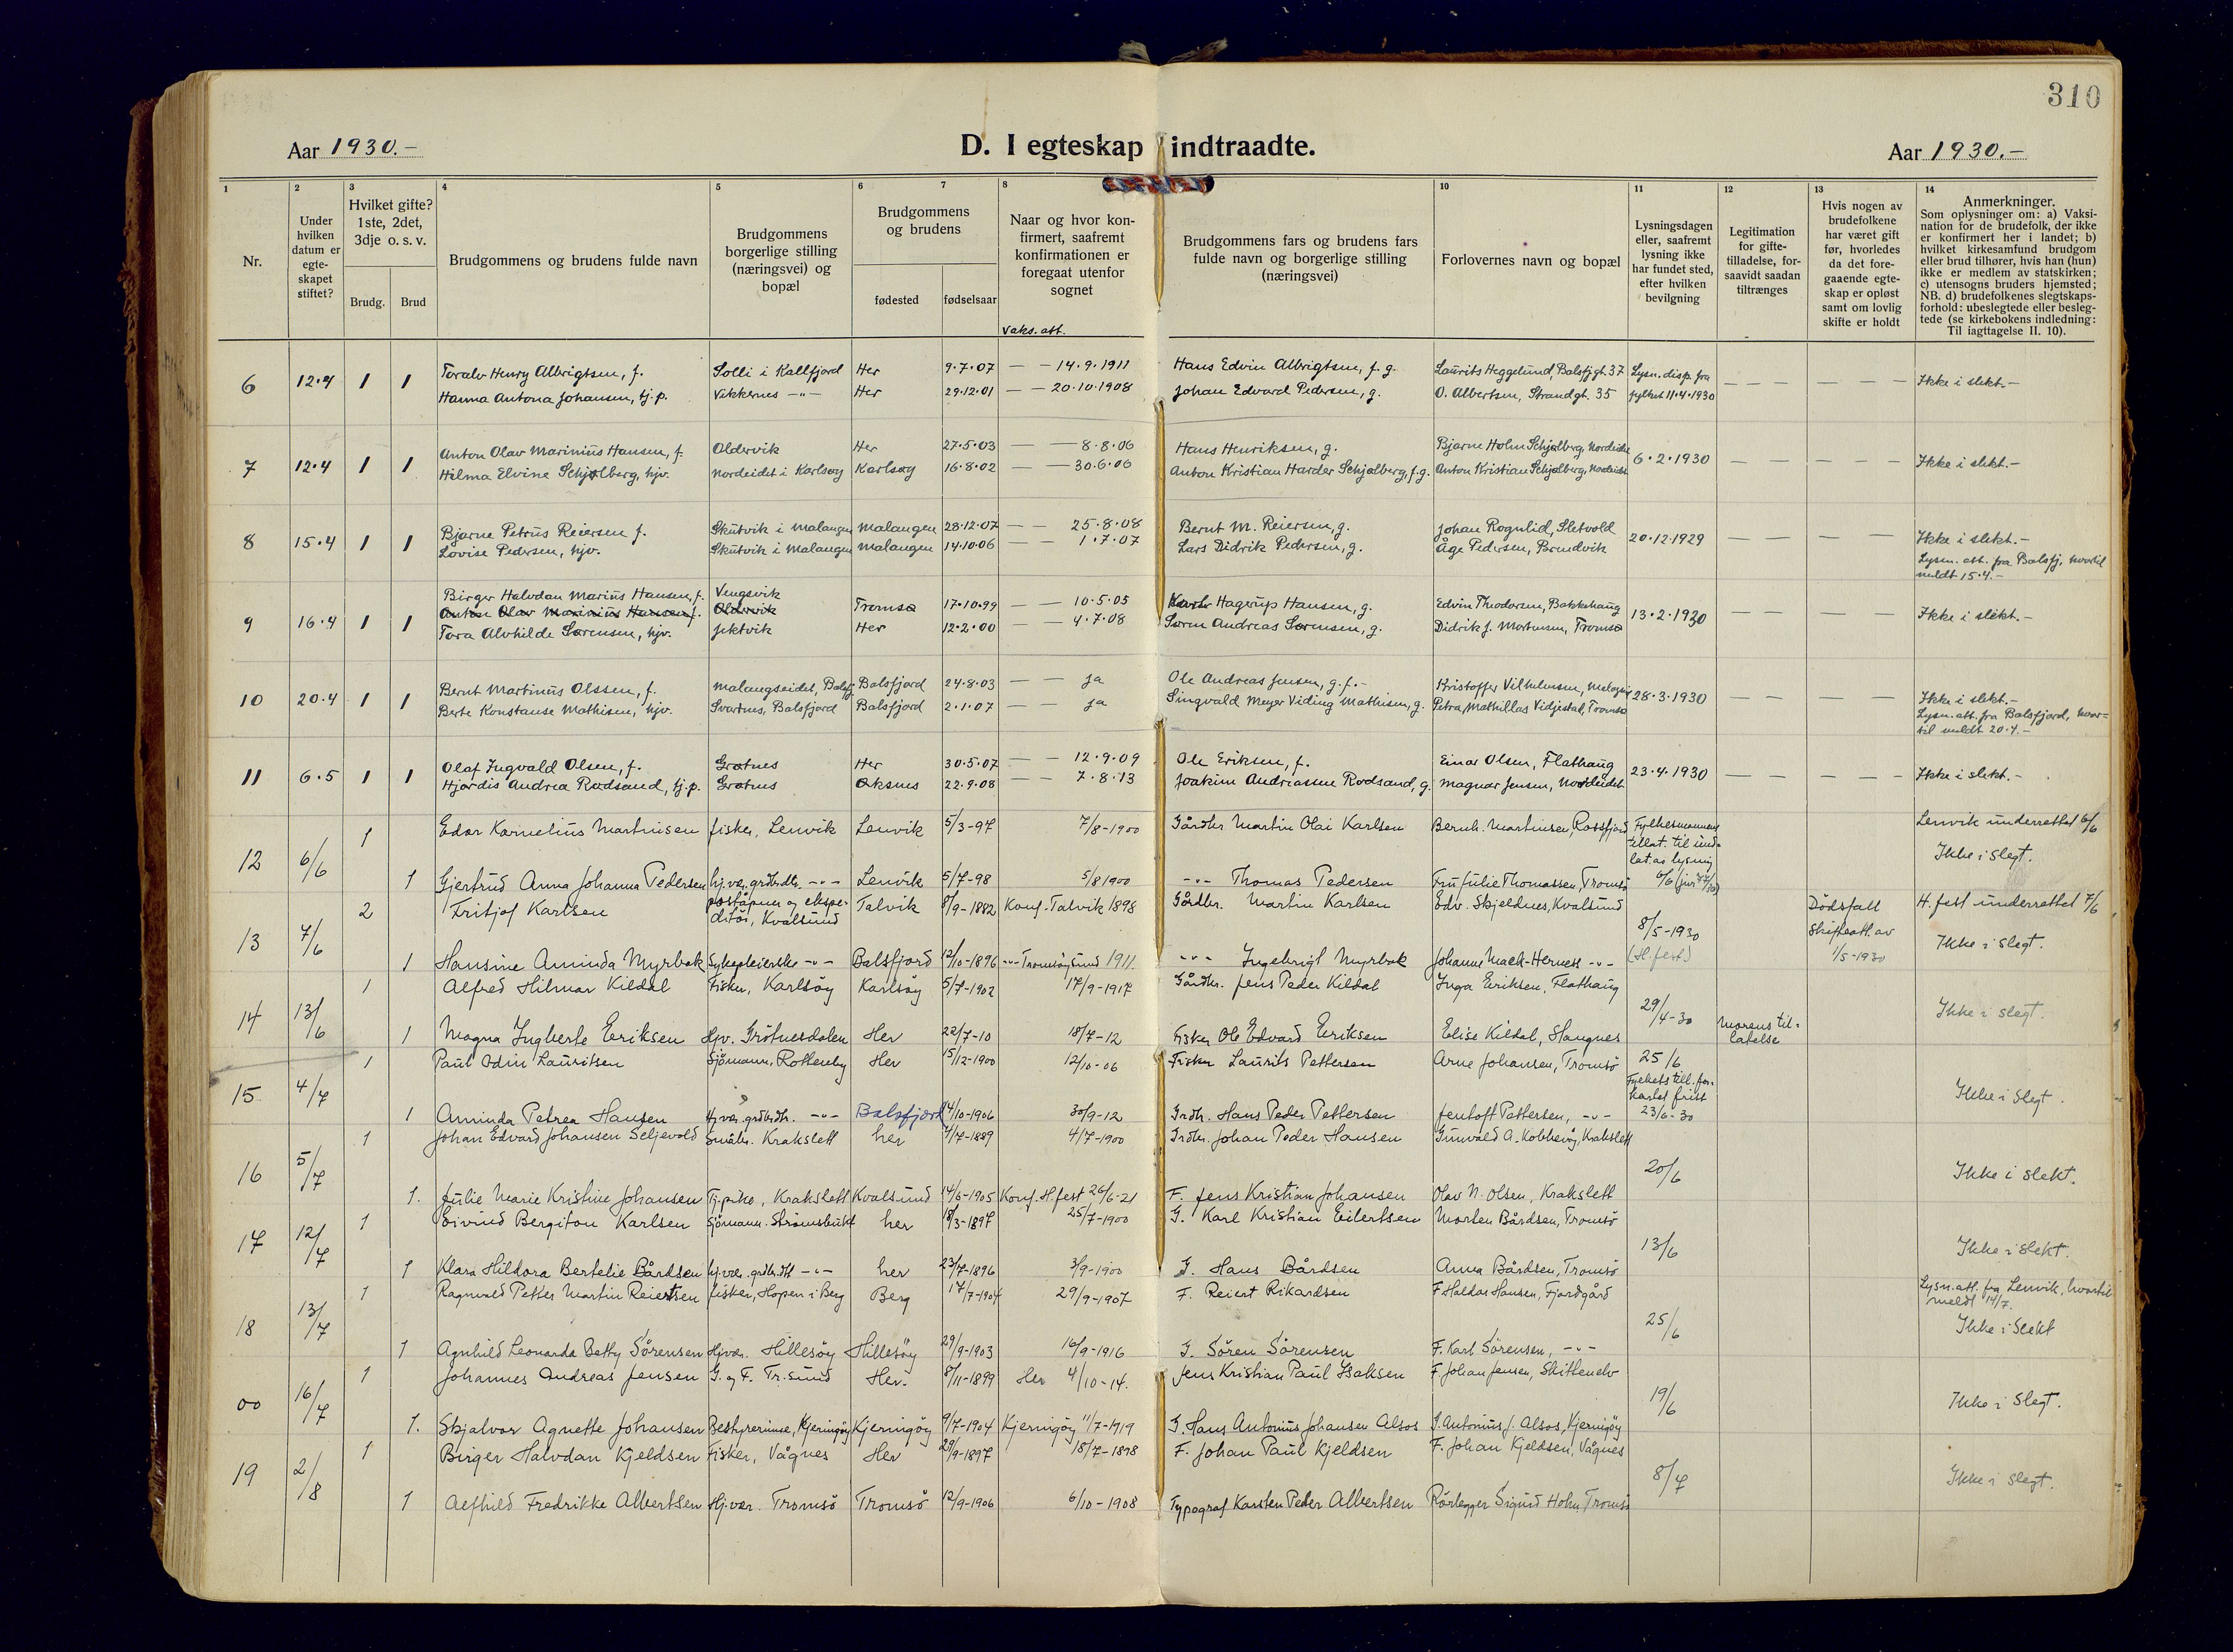 310
Aar 1930.-
D. I egteskap indtraadte.
Aar 1930.-
1 2 3 4 5 6 7 8 10 11 12 13 14
Nr.
Under hvilken datum er egte-skapet stiftet?
Hvilket gifte? 1ste, 2det, 3dje o. s. v.
Brudg. Brud
Brudgommens og brudens fulde navn
Brudgommens borgerlige stilling (næringsvei) og bopæl
Brudgommens og brudens
fødested fødselsaar
Naar og hvor kon-firmert, saafremt konfirmationen er foregaat utenfor sognet
Vaks. att.
Brudgommens fars og brudens fars fulde navn og borgerlige stilling (næringsvei)
Forlovernes navn og bopæl
Lysningsdagen eller, saafremt lysning ikke har fundet sted, efter hvilken bevilgning
Legitimation for gifte-tilladelse, for-saavidt saadan tiltrænges
Hvis nogen av brudefolkene har været gift før, hvorledes da det fore-gaaende egte-skap er opløst samt om lovlig skifte er holdt
Anmerkninger.
Som oplysninger om: a) Vaksi-nation for de brudefolk, der ikke er konfirmert her i landet; b) hvilket kirkesamfund brudgom eller brud tilhører, hvis han (hun) ikke er medlem av statskirken; c) utensogns bruders hjemsted; NB. d) brudefolkenes slegtskaps-forhold: ubeslegtede eller besleg-tede (se kirkebokens indledning: Til iagttagelse II. 10).
6 12.4 1 1 Toralv Henry Albrigtsen, f. Solli i Kallfjord Her 9.7.07 — — 14.9.1911 Hans Edvin Albrigtsen, f. g. Laurits Heggelund, Balsfjgt. 37 Lysn. disp. fra — — — — — — Ikke i slekt.-
Hanna Antona Johansen, tj.p. Vikkernes -"- Her 29.12.01 — — 20.10.1908 Johan Edvard Pedersen, g. O. Albertsen, Strandgt. 35 fylket 11.4.1930
7 12.4 1 1 Anton Olav Marinius Hansen, f. Oldervik Her 27.5.03 — — 8.8.06 Hans Henriksen, g. Bjarne Holm Schjølberg, Nordeidet 6.2.1930 — — — — Ikke i slekt.-
Hilma Elvine Schjølberg, hjv. Nordeidet i Karlsøy Karlsøy 16.8.02 — — 30.6.06 Anton Kristian Harder Schjølberg, f.g. Anton Kristian Schjølberg, Nordeidet
8 15.4 1 1 Bjarne Petrus Reiersen f. Skutvik i Malangen Malangen 28.12.07 — — 25.8.08 Bernt M. Reiersen, g. Johan Rognlid, Sletvold 20.12.1929 — — — — Ikke i slekt.-
Lovise Pedersen, hjv. Skutvik i Malangen Malangen 14.10.06 — — 1.7.07 Lars Didrik Pedersen, g. Åge Pedersen, Brendvik Lysn. att. fra Balsfj, hvortil
meldt 15.4.-
Birger Halvdan Marius Hansen, f. Vengsvik
9 16.4 1 1 Anton Olav Marinius Hansen f. Oldervik Tromsø 17.10.99 — — 10.5.05 Karl Hagerup Hansen, g. Edvin Theodorsen, Bakkehaug 13.2.1930 — — — — Ikke i slekt.-
Tora Alvhilde Sørensen, hjv. Jektvik Her 12.2.00 — — 4.7.08 Søren Andreas Sørensen, g. Didrik J. Mortensen, Tromsø
10 20.4 1 1 Bernt Martinus Olssen, f. Malangseidet, Balsfj. Balsfjord 24.8.03 — — ja Ole Andreas Jensen, g.f.- Kristoffer Vilhelmsen, 28.3.1930 — — — — Ikke i slekt.-
Berte Konstanse Mathisen, hjv. Svartnes, Balsfjord Balsfjord 2.1.07 — — ja Singvald Meyer Viding Mathisen, g. Petra Mathillas Vidjestad, Tromsø Lysn. att. fra Balsfjord, hvor-
til meldt 20.4.-
11 6.5 1 1 Olaf Ingvald Olsen, f. Grøtnes Her 30.5.07 — — 12.9.09 Ole Eriksen, f. Einar Olsen, Flathaug 23.4.1930 — — — — Ikke i slekt.-
Hjørdis Andrea Rødsand, tj.p. Grøtnes Øksnes 22.9.08 — — 7.8.13 Joakim Andreassen Rødsand, g. Magnar Jensen, Nordeidet
12 6/6 1 Edor Kornelius Martinsen fisker, Lenvik Lenvik 5/3-97 7/8-1900 Gårdbr Martin Olai Karlsen Bernh. Martinsen, Rossfjord Fylkesmannens tillat. til und-lat. av lysning Lenvik underrettet 6/6
Ikke i slegt.
1 Gjertrud Anna Johanna Pedersen hj.vær. grdbrdtr. -"- Lenvik 5/7-98 5/8 1900 -"- Thomas Pedersen Fru Julie Thomassen, Tromsö 6/6
13 7/6 2 Fritjof Karlsen poståpner og ekspe-ditör, Kvalsund Talvik 8/9-1882 Konf. Talvik 1898 Gårdbr. Martin Karlsen Edv. Skjeldnes, Kvalsund 8/5-1930 (H.fest) Dödsfall Skifteatt. av 1/5-1930 H. fest underrettet 7/6
Ikke i slegt.
1 Hansine Aminda Myrbak Sykepleierske -"- Balsfjord 12/10-1896 -"- Tromsöysund 1911. -"- Ingebrigt Myrbak Johanne Mack-Herness -"-
14 13/6 1 Alfred Hilmar Kildal Fisker, Karlsöy Karlsöy 5/7-1902 17/9-1917 Gårdbr. Jens Peder Kildal Inga Eriksen, Flathaug 29/4-30 Morens til-latelse Ikke i slegt.
1 Magna Ingberte Eriksen Hjv. Grötnesdalen Her 22/7-10 18/7-12 Fisker Ole Edvard Eriksen Elise Kildal, Stangnes
15. 4/7 1 Paul Odin Lauritsen Sjömann, Rottenby Her 15/12-1900 12/10-06 Fisker Laurits Pettersen Arne Johansen, Tromsö 25/6 Fylkets till. for-kortet frist 23/6-30 Ikke i slegt.
1 Aminda Petrea Hansen Hj.vær. grdbrdtr. -"- Balsfjord 14/10-1906 30/9-12 Grdbr. Hans Peder Pettersen Jentoft Pettersen, -"-
16 5/7 1 Johan Edvard Johansen Seljevold Småbr. Krakslett her 7/7-1889 4/7-1900 Grdbr. Johan Peder Hansen Grunvald A. Kobbevåg, Krakslett 20/6 Ikke i slekt.
1. Julie Marie Kristine Johansen Tj.pike, Krakslett Kvalsund 14/6-1905 Konf. H.fest 26/6-21 F. Jens Kristian Johansen Olav N. Olsen, Krakslett
17 12/7 1 Eivind Bergiton Karlsen Sjömann. Strömsbukt her 18/3-1897 25/7-1900 G. Karl Kristian Eilertsen Morten Bårdsen, Tromsö 13/6 Ikke i slekt.
1 Klara Hildora Bertelie Bårdsen hj.vær. grdbr.dtr -"- her 23/7-1896 3/9-1900 G. Hans Bårdsen Anna Bårdsen, Tromsö
18 13/7 1 Ragnvald Petter Martin Reiertsen fisker, Hopen i Berg Berg 17/7-1904 29/9-1907 F. Reiert Rikardsen F Haldor Hansen, Fjordgård 25/6 Lysn. att. fra Lenvik, hvortil
meldt 14/7.
Ikke i slekt
1 Agnhild Leonarda Betty Sörensen Hjvær. Hillesöy Hillesöy 29/9-1903 16/9-1916 G. Sören Sörensen F. Karl Sörensen, -"-
00 16/7 1 Johannes Andreas Jensen G. og F. Tr.sund Her. 8/11-1899 Her 4/10-14. Jens Kristian Paul Isaksen F. Johan Jensen, Skittenelv 19/6 Ikke i slegt.
1. Skjalvor Agnette Johansen Bestyrerinne, Kjerringöy Kjerringöy 9/7-1904 Kjerringöy 11/7-1919 G. Hans Antonius Johansen Alsos G. Antonius J. Alsos, Kjerringöy
19 2/8 1 Birger Halvdan Kjeldsen Fisker, Vågnes Her 29/9-1897 18/7-1898 F. Johan Paul Kjeldsen F. Johan Kjeldsen, Vågnes 8/7 Ikke i slegt.
1 Alfhild Fredrikke Albertsen Hj.vær. Tromsö Tromsö 12/9-1906 6/10-1908 Typograf Karsten Peder Albertsen Rörlegger Sigurd Holm, Tromsö